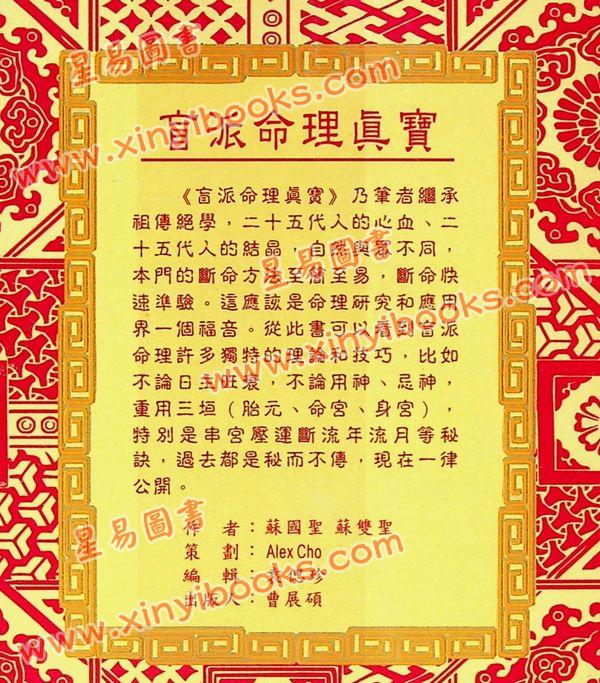 星易圖書
www.xinyibooks.com
盲派命理眞寶
《盲派命理眞寶》乃筆者繼承
祖傳絕學，二十五代人的心血、二
十五代人的結晶，自然與眾不同，
本門的斷命方法至簡至易，斷命快
速準驗。這應該是命理研究和應用
界一個福音。從此書可以看到盲派
命理許多獨特的理論和技巧，比如
不論日主旺衰，不論用神、忌神，
重用三垣（胎元、命宮、身宮），
特別是串宮壓運斷流年流月等秘
訣，過去都是秘而不傳，現在一律
公開。
星易圖書
www.xinyibooks.com
作　者：蘇國聖 蘇雙聖
策　劃：Alex Cho
編　輯：袁珍
出版人：曹展碩
星易圖書
www.xinyibooks.com